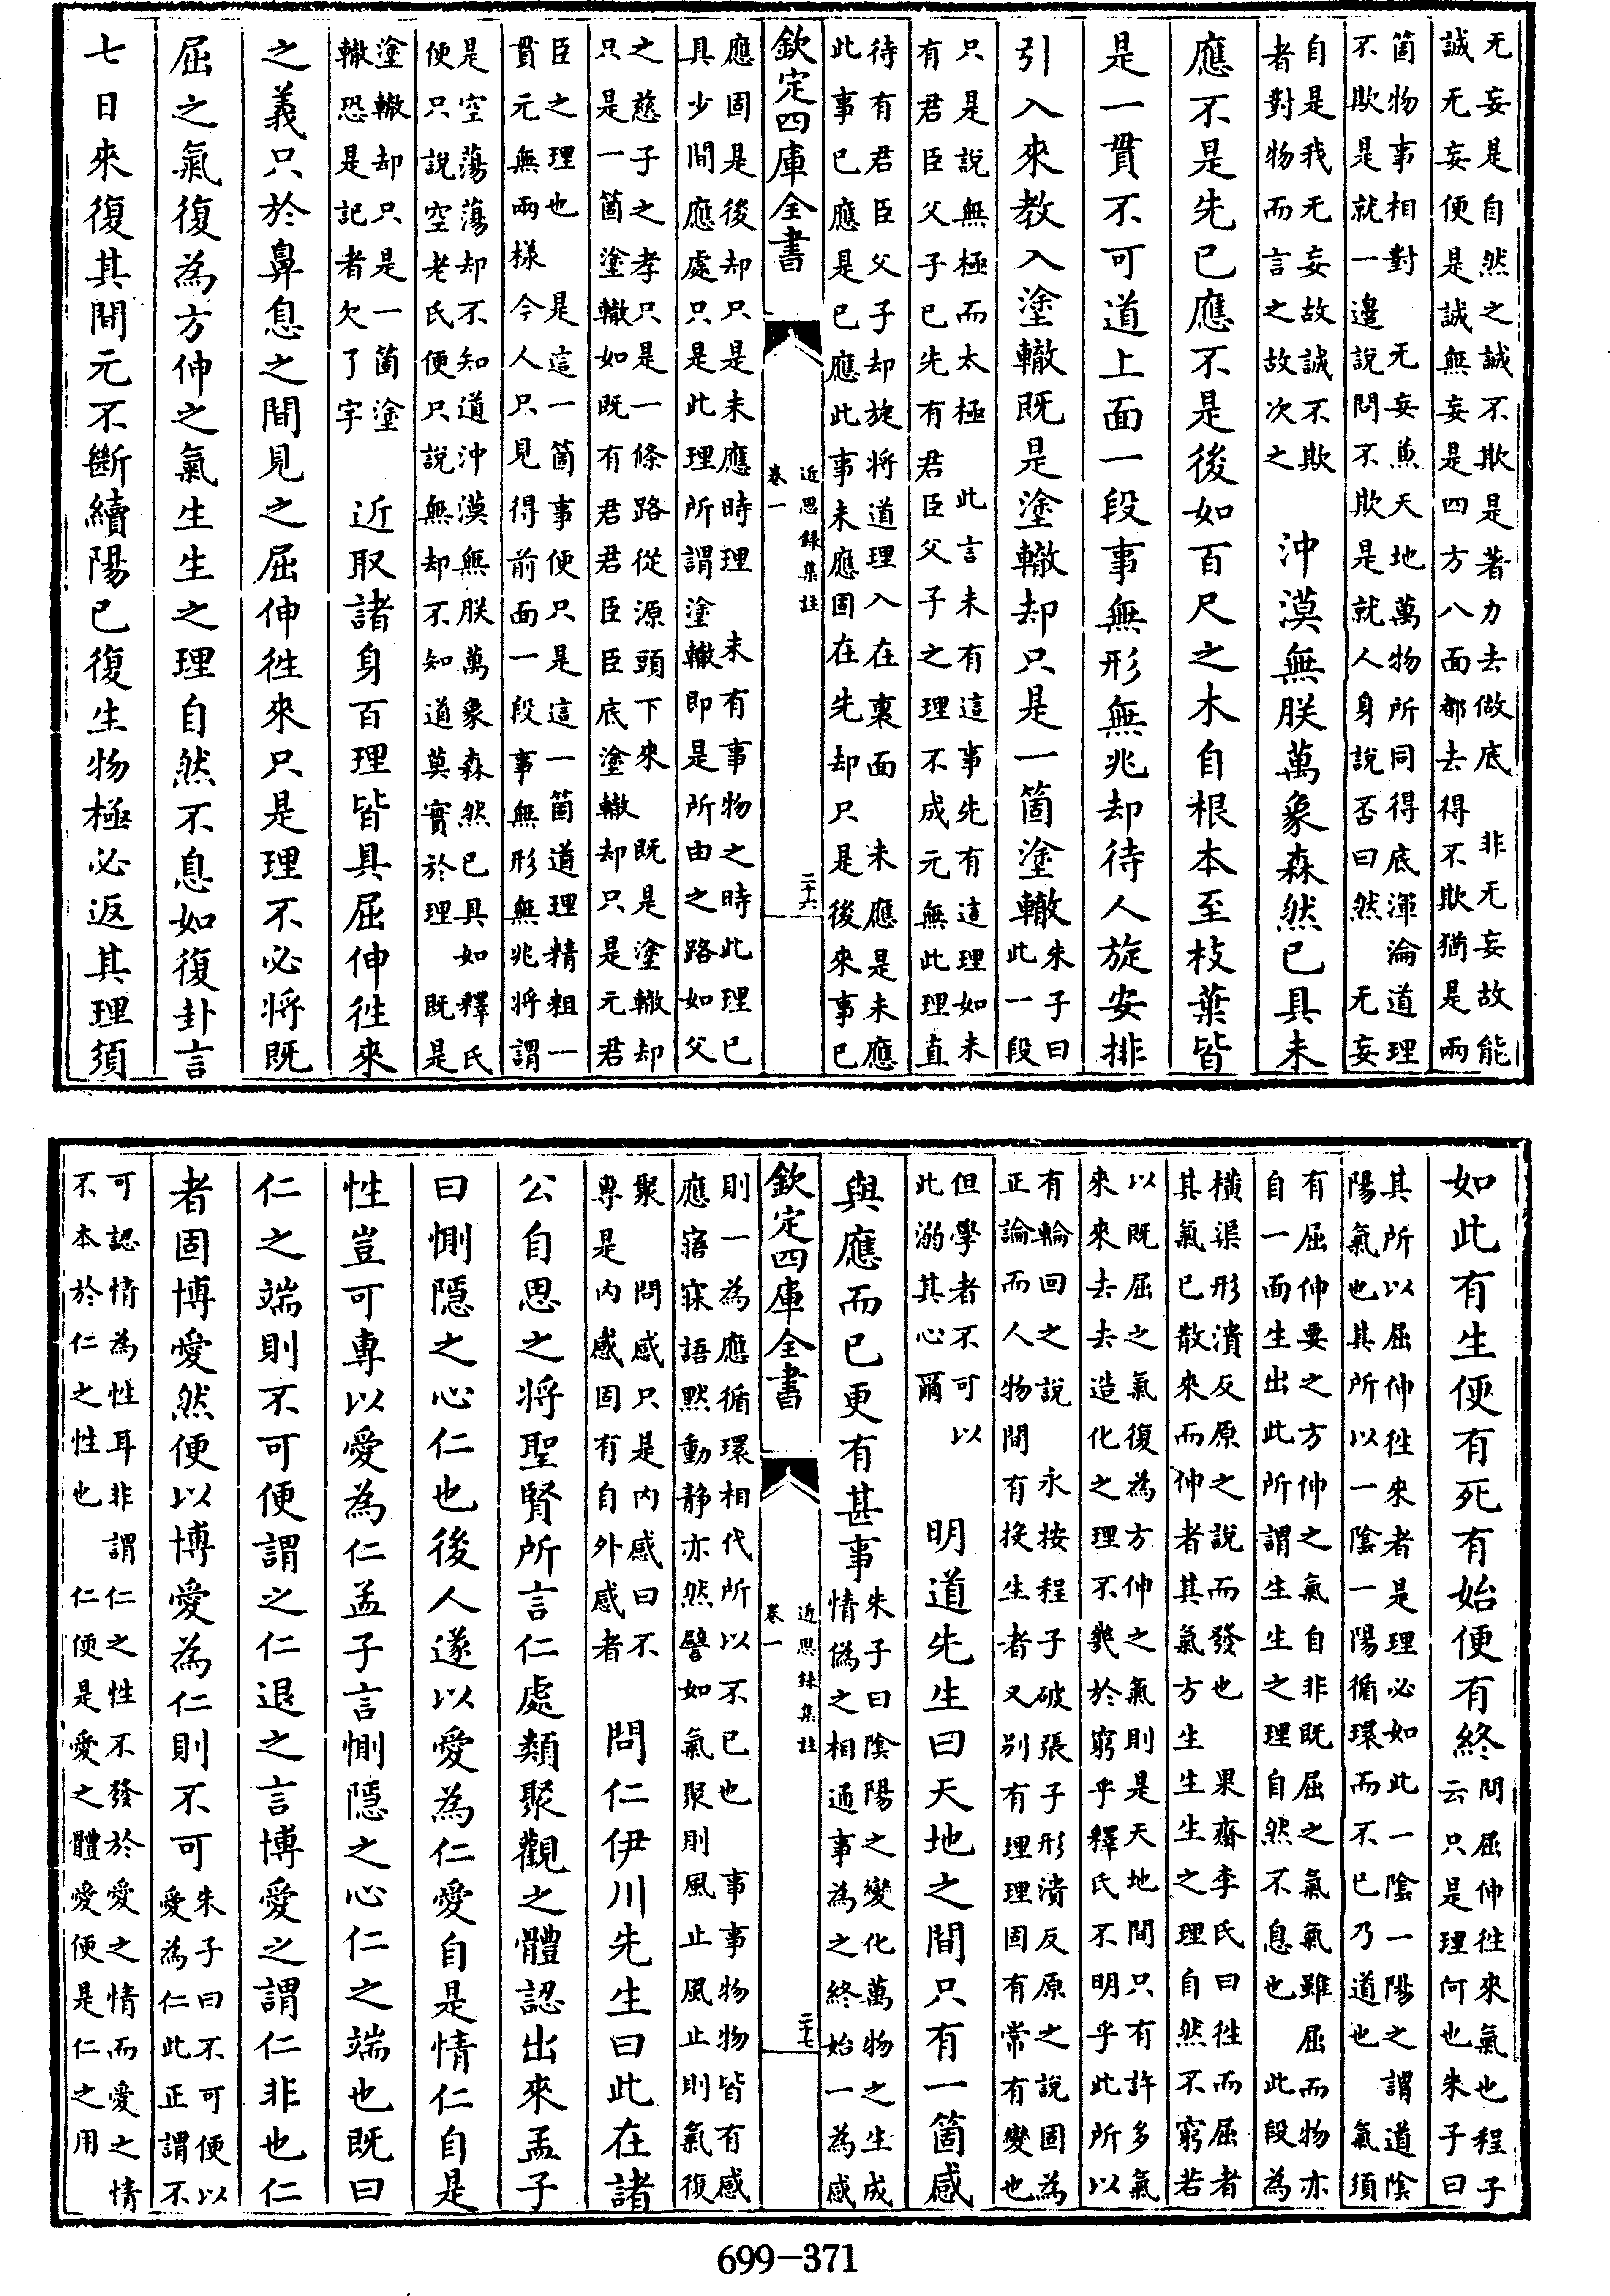 无妄是自然之誠不欺是著力去做底　非无妄故能
誠无妄便是誠無妄是四方八面都去得不欺猶是兩
箇物事相對　无妄兼天地萬物所同得底渾淪道理
不欺是就一邊說問不欺是就人身說否曰然　无妄
自是我无妄故誠不欺
者對物而言之故次之
沖漠無朕萬象森然已具未
應不是先已應不是後如百尺之木自根本至枝葉皆
是一貫不可道上面一段事無形無兆却待人旋安排
引入來教入塗轍既是塗轍却只是一箇塗轍
朱子曰
此一段
只是說無極而太極　此言未有這事先有這理如未
有君臣父子已先有君臣父子之理不成元無此理直
待有君臣父子却旋將道理入在裏面　未應是未應
此事已應是已應此事未應固在先却只是後來事已
欽定四庫全書
近思錄集註
卷一
二十六
應固是後却只是未應時理　未有事物之時此理已
具少間應處只是此理所謂塗轍即是所由之路如父
之慈子之孝只是一條路從源頭下來　既是塗轍却
只是一箇塗轍如既有君君臣臣底塗轍却只是元君
臣之理也　是這一箇事便只是這一箇道理精粗一
貫元無兩樣今人只見得前面一段事無形無兆將謂
是空蕩蕩却不知道沖漠無朕萬象森然已具如釋氏
便只說空老氏便只說無却不知道莫實於理　既是
塗轍却只是一箇塗
轍恐是記者欠了字
近取諸身百理皆具屈伸徃來
之義只於鼻息之間見之屈伸徃來只是理不必將既
屈之氣復為方伸之氣生生之理自然不息如復卦言
七日來復其間元不斷續陽已復生物極必返其理須
如此有生便有死有始便有終
問屈伸徃來氣也程子
云只是理何也朱子曰
其所以屈伸徃來者是理必如此一陰一陽之謂道陰
陽氣也其所以一陰一陽循環而不已乃道也　氣須
有屈伸要之方伸之氣自非既屈之氣氣雖屈而物亦
自一面生出此所謂生生之理自然不息也　此段為
橫渠形潰反原之說而發也　果齋李氏曰徃而屈者
其氣已散來而伸者其氣方生生生之理自然不窮若
以既屈之氣復為方伸之氣則是天地間只有許多氣
來來去去造化之理不幾於窮乎釋氏不明乎此所以
有輪回之說　永按程子破張子形潰反原之說固為
正論而人物間有投生者又別有理理固有常有變也
但學者不可以
此溺其心爾
明道先生曰天地之間只有一箇感
與應而已更有甚事
朱子曰陰陽之變化萬物之生成
情偽之相通事為之終始一為感
欽定四庫全書
近思錄集註
卷一
二十七
則一為應循環相代所以不已也　事事物物皆有感
應寤寐語默動靜亦然譬如氣聚則風止風止則氣復
聚　問感只是内感曰不
專是内感固有自外感者
問仁伊川先生曰此在諸
公自思之將聖賢所言仁處類聚觀之體認出來孟子
曰惻隱之心仁也後人遂以愛為仁愛自是情仁自是
性豈可專以愛為仁孟子言惻隱之心仁之端也既曰
仁之端則不可便謂之仁退之言博愛之謂仁非也仁
者固博愛然便以博愛為仁則不可
朱子曰不可便以
愛為仁此正謂不
可認情為性耳非謂仁之性不發於愛之情而愛之情
不本於仁之性也　仁便是愛之體愛便是仁之用
699-371